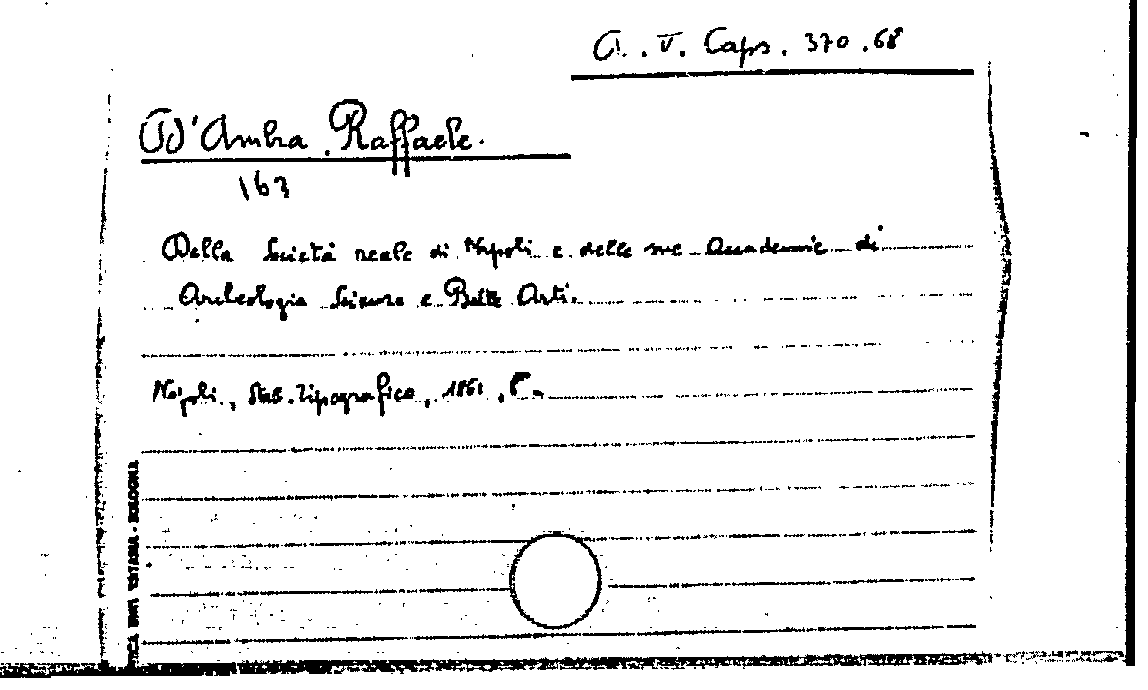 A. V. Caps. 370.68
D'Ambra Raffaele.
163
Della Società reale di Napoli e delle sue Accademie di
Archeologia Scienze e Belle Arti.
Napoli, Stab. Tipografico, 1861, 8°.
BOLOGNA